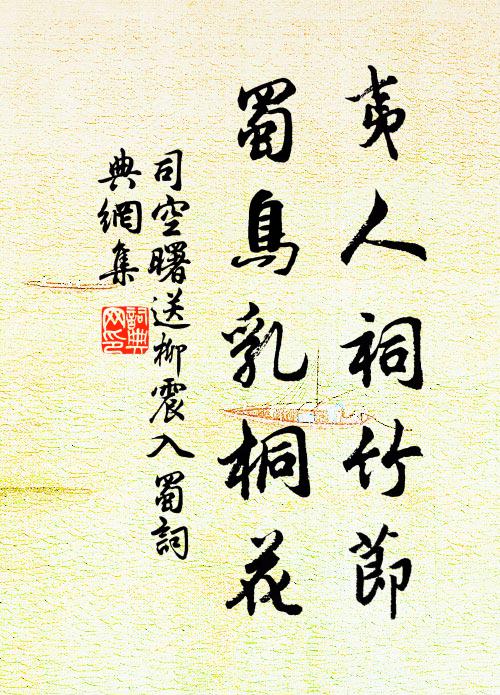 夷人祠竹節
蜀鳥乳桐花
司空曙送柳震入蜀詞
典網集
詞典
网印